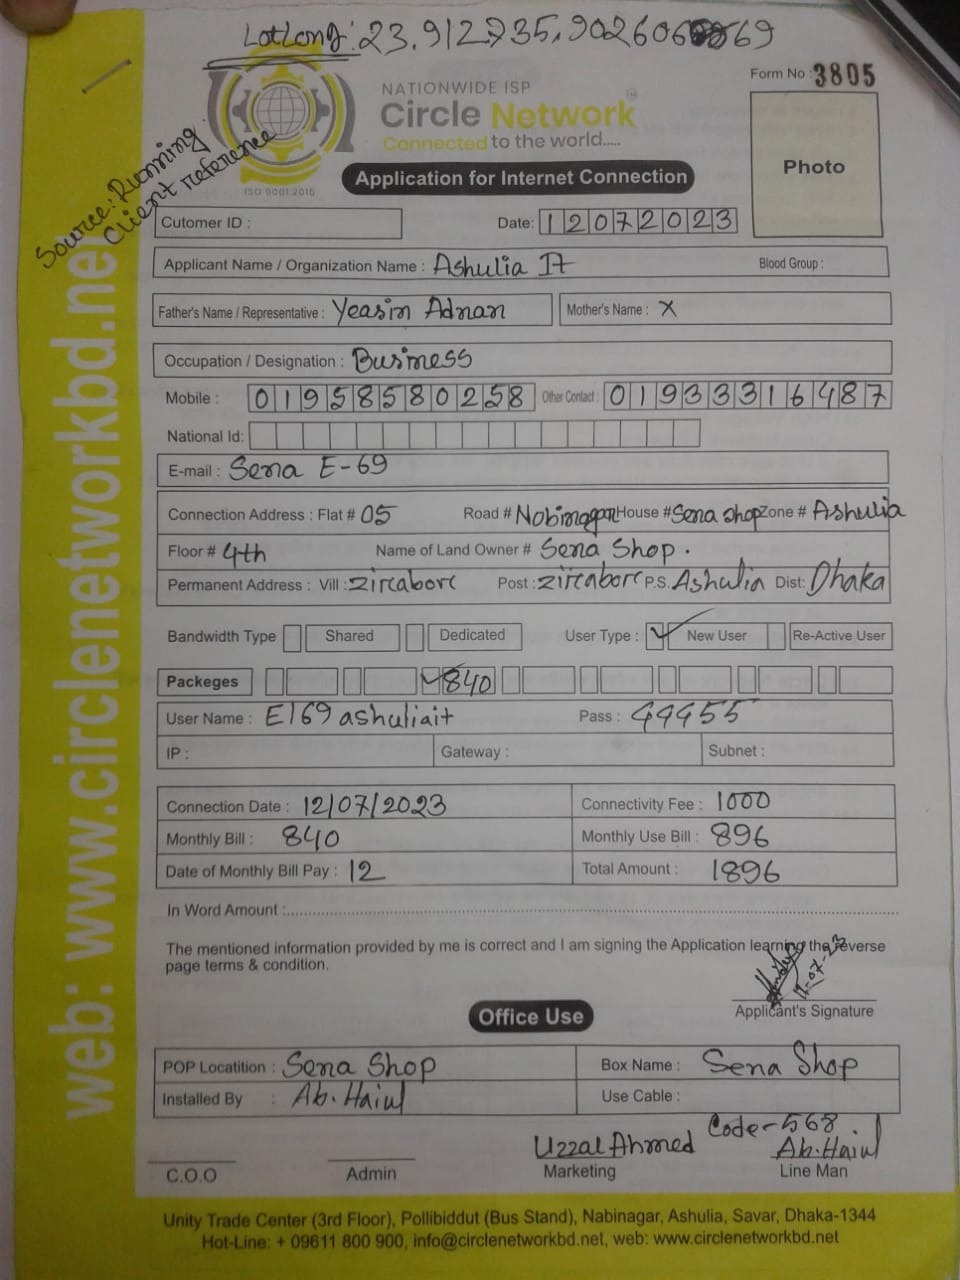 LatLong: 23.912735,90260669
Form No : 3805
NATIONWIDE ISP
Circle Network
Connected to the world.....
ISO 9001:2015
Source: Running
Client reference
Photo
Application for Internet Connection
Cutomer ID :
Date: 12072023
Applicant Name / Organization Name : Ashulia It Blood Group :
Father's Name / Representative : Yeasin Adnan Mother's Name : X
Occupation / Designation : Business
Mobile : 01958580258 Other Contact : 01933316487
National Id:
E-mail : Sena E-69
Connection Address : Flat # 05 Road # Nobinagar House # Sena Shop Zone # Ashulia
Floor # 4th Name of Land Owner # Sena Shop.
Permanent Address : Vill : zircabore Post : zircabore P.S. Ashulia Dist: Dhaka
Bandwidth Type Shared Dedicated User Type : ✓ New User Re-Active User
Packeges ✓ 840
User Name : E169ashuliait Pass : 44455
IP : Gateway : Subnet :
Connection Date : 12/07/2023 Connectivity Fee : 1000
Monthly Bill : 840 Monthly Use Bill : 896
Date of Monthly Bill Pay : 12 Total Amount : 1896
In Word Amount :
The mentioned information provided by me is correct and I am signing the Application learning the reverse
page terms & condition.
Applicant's Signature
Office Use
POP Locatition : Sena Shop Box Name : Sena Shop
Installed By : Ab. Haiul Use Cable :
Code-568.
Uzzal Ahmed Ab. Haiul
C.O.O Admin Marketing Line Man
Unity Trade Center (3rd Floor), Pollibiddut (Bus Stand), Nabinagar, Ashulia, Savar, Dhaka-1344
Hot-Line: + 09611 800 900, info@circlenetworkbd.net, web: www.circlenetworkbd.net
web: www.circlenetworkbd.ne